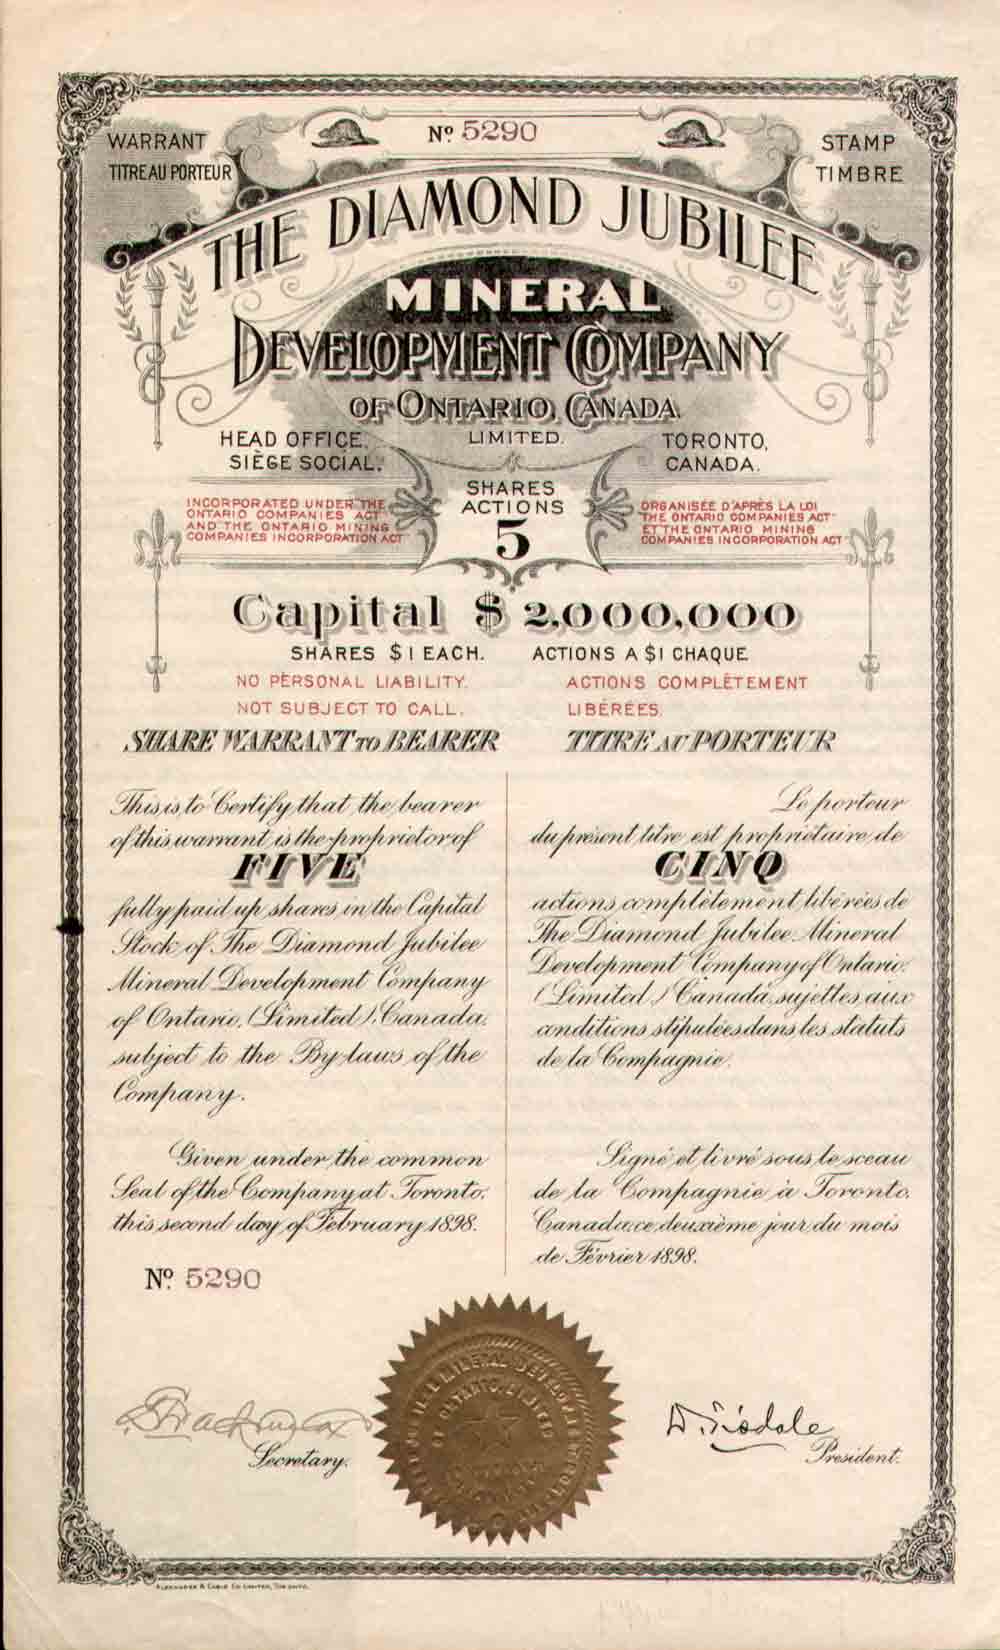 WARRANT
TITRE AU PORTEUR
Nº 5290
STAMP
TIMBRE
THE DIAMOND JUBILEE
MINERAL
DEVELOPMENT COMPANY
OF ONTARIO, CANADA.
LIMITED.
HEAD OFFICE,
SIÈGE SOCIAL,
TORONTO,
CANADA.
SHARES
ACTIONS
5
INCORPORATED UNDER THE
ONTARIO COMPANIES ACT
AND THE ONTARIO MINING
COMPANIES INCORPORATION ACT
ORGANISÉE D'APRÈS LA LOI
THE ONTARIO COMPANIES ACT
ET THE ONTARIO MINING
COMPANIES INCORPORATION ACT
Capital $2,000,000
SHARES $1 EACH.
ACTIONS A $1 CHAQUE
NO PERSONAL LIABILITY.
NOT SUBJECT TO CALL.
ACTIONS COMPLÈTEMENT
LIBÉRÉES.
SHARE WARRANT TO BEARER
TITRE AU PORTEUR
This is to Certify that the bearer
of this warrant is the proprietor of
FIVE
fully paid up shares in the Capital
Stock of The Diamond Jubilee
Mineral Development Company
of Ontario, (Limited), Canada,
subject to the By-laws of the
Company.
Given under the common
Seal of the Company at Toronto,
this second day of February 1898.
Le porteur
du présent titre est propriétaire de
CINQ
actions complètement libérées de
The Diamond Jubilee Mineral
Development Company of Ontario,
(Limited) Canada, sujettes aux
conditions stipulées dans les statuts
de la Compagnie.
Signé et livré sous le sceau
de la Compagnie à Toronto,
Canada, ce deuxième jour du mois
de Février 1898.
Nº 5290
Secretary.
D. Tisdale
President.
MINERAL DEVELOPMENT
OF ONTARIO, LIMITED